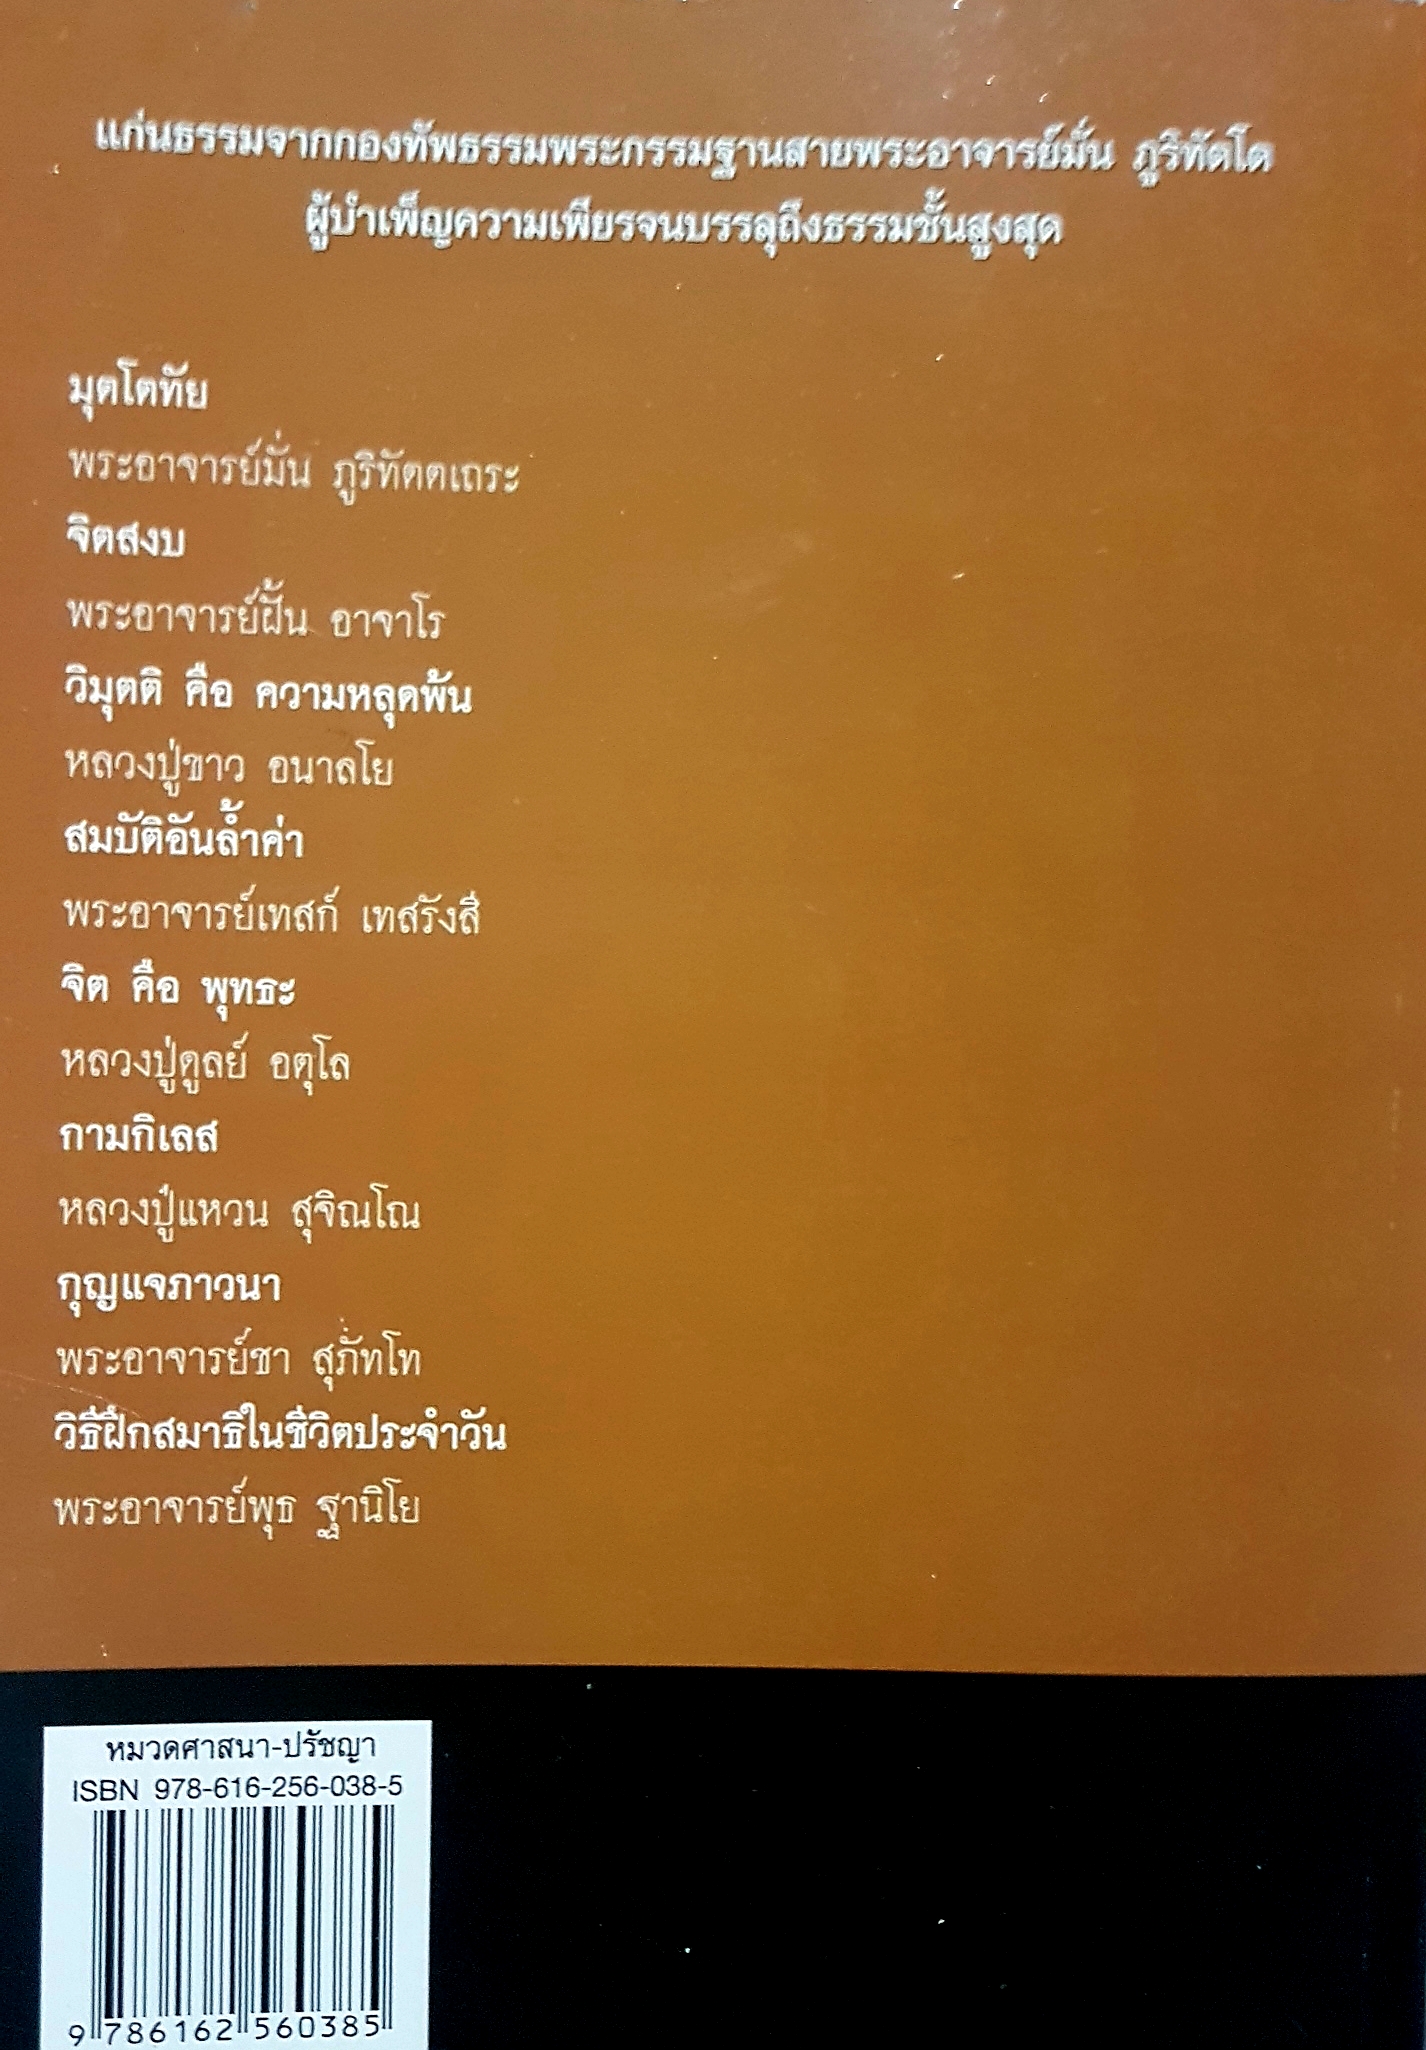 แก่นธรรมจากกองทัพธรรมพระกรรมฐานสายพระอาจารย์มั่น ภูริทัตโต
ผู้บำเพ็ญความเพียรจนบรรลุถึงธรรมชั้นสูงสุด
มุตโตทัย
พระอาจารย์มั่น ภูริทัตตเถระ
จิตสงบ
พระอาจารย์ฝั้น อาจาโร
วิมุตติ คือ ความหลุดพ้น
หลวงปู่ขาว อนาลโย
สมบัติอันล้ำค่า
พระอาจารย์เทสก์ เทสรังสี
จิต คือ พุทธะ
หลวงปู่ดูลย์ อตุโล
กามกิเลส
หลวงปู่แหวน สุจิณโณ
กุญแจภาวนา
พระอาจารย์ชา สุภัททโท
วิธีฝึกสมาธิในชีวิตประจำวัน
พระอาจารย์พุธ ฐานิโย
หมวดศาสนา-ปรัชญา
ISBN 978-616-256-038-5
9 786162 560385